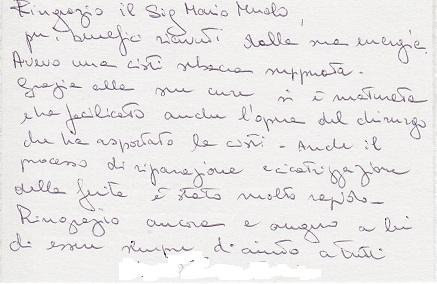 Ringrazio il Sig Mario
per i benefici ricevuti dalla sua energia.
Avevo una cisti sebacea suppurata.
Grazie alle sue cure si è maturata
e ha facilitato anche l'opera del chirurgo
che ha asportato la cisti - Anche il
processo di riparazione e cicatrizzazione
della ferita è stato molto rapido -
Ringrazio ancora e auguro a lui
di essere sempre d'aiuto a tutti